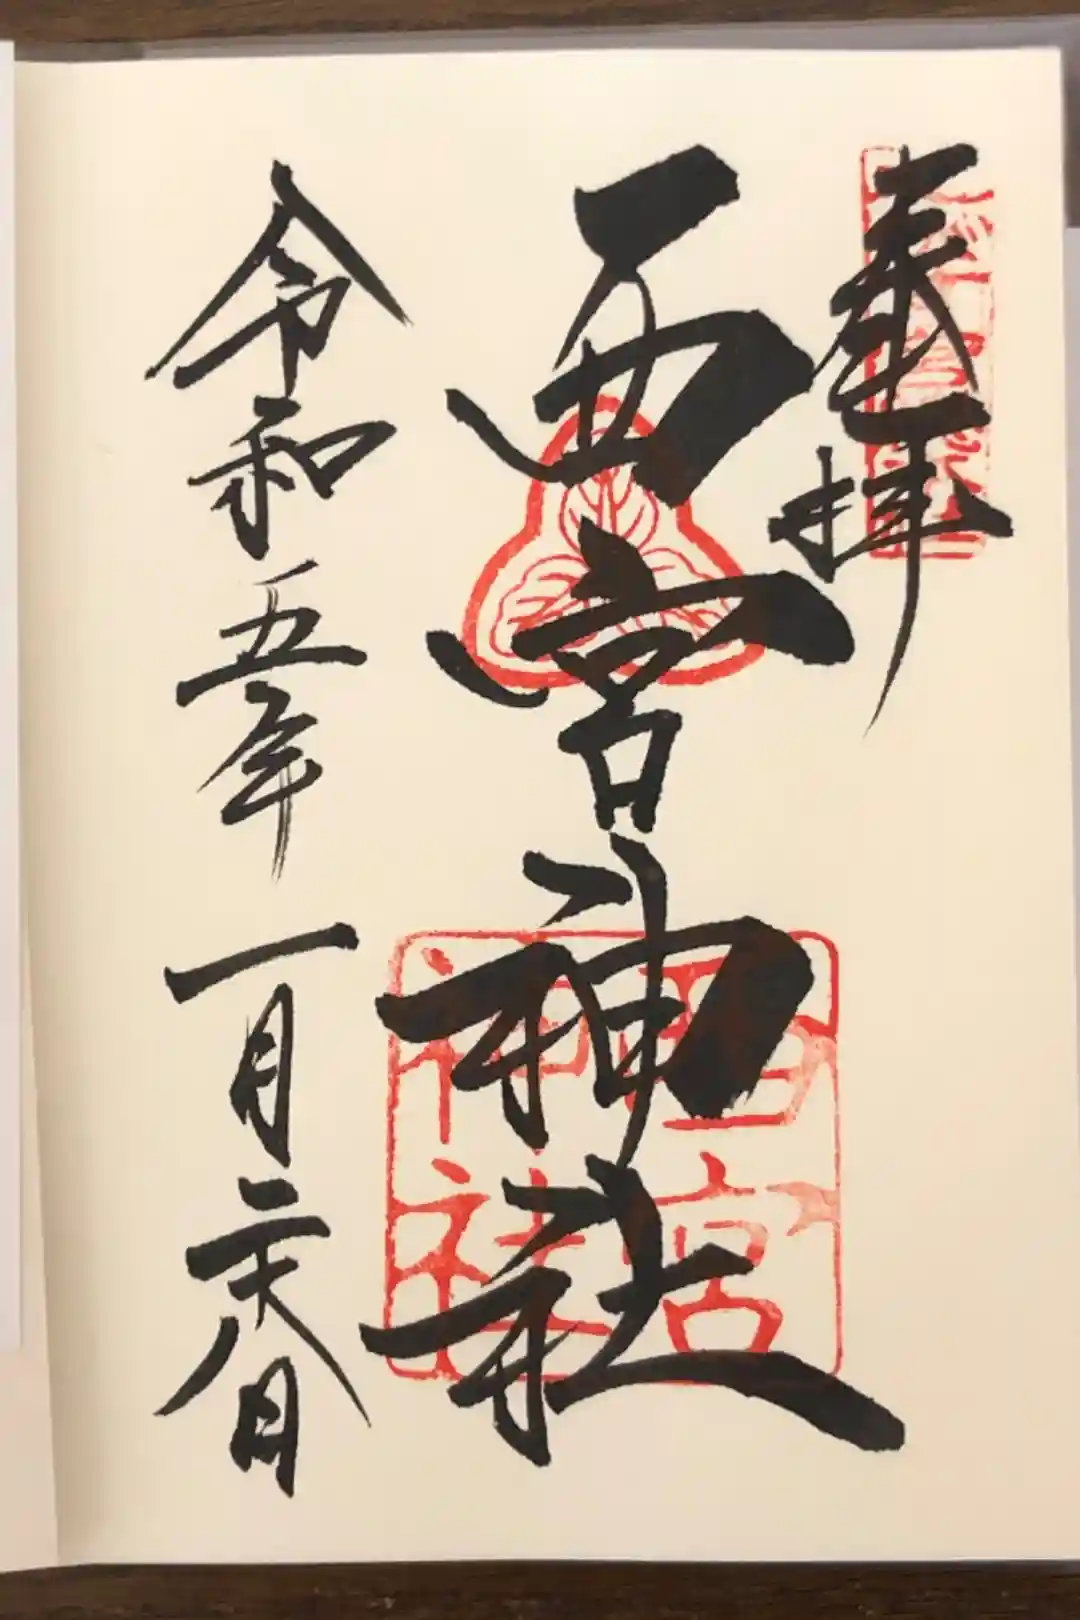 奉拝
西宮神社
西宮
神社
令和五年一月二十八日